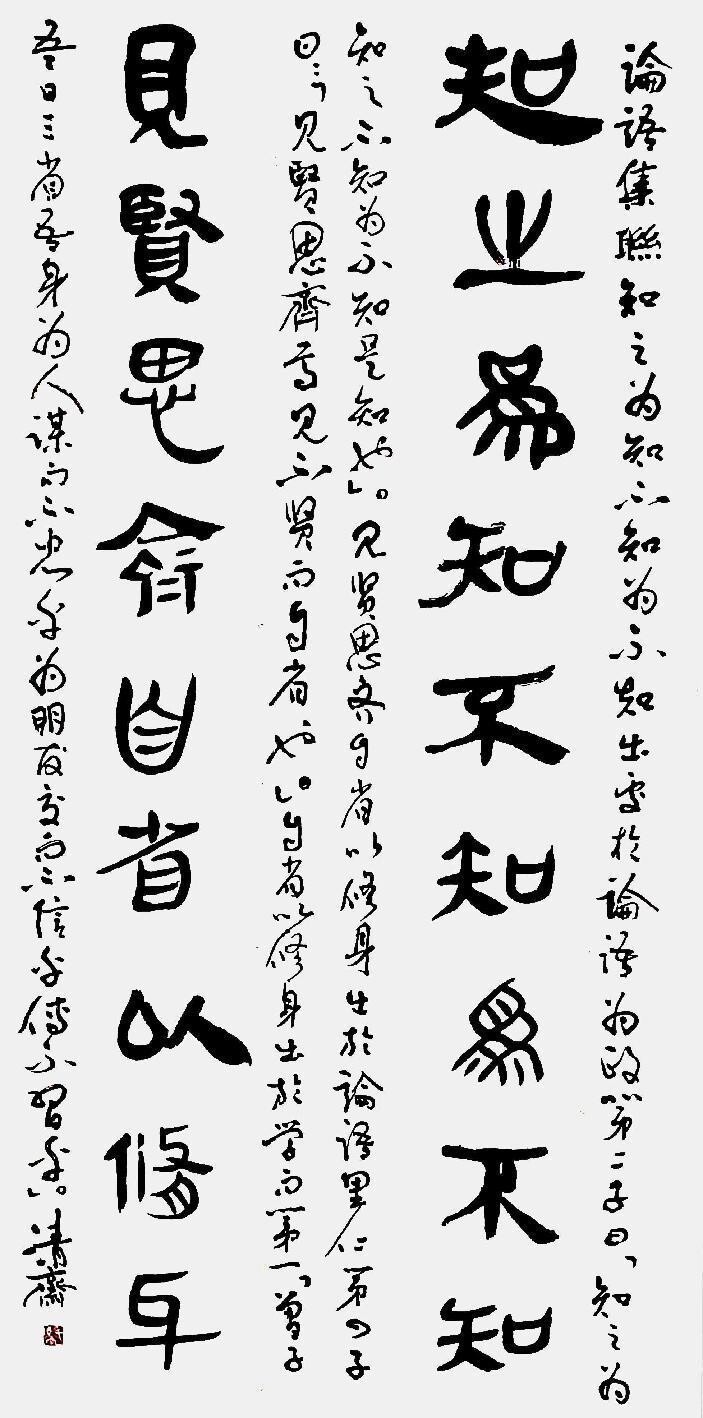 論語集聯知之为知不知为不知出處於論語为政第二子曰、知之为
知之爲知不知爲不知
知之不知为不知是知也。见贤思齐自省以修身出於論語里仁第四子
曰:见賢思齊焉见不贤而自省也。自省以修身出於学而第一、曾子
見賢思齊自省以脩身
吾日三省吾身为人谋而不忠乎为朋友交而不信乎傳不習乎。清齋